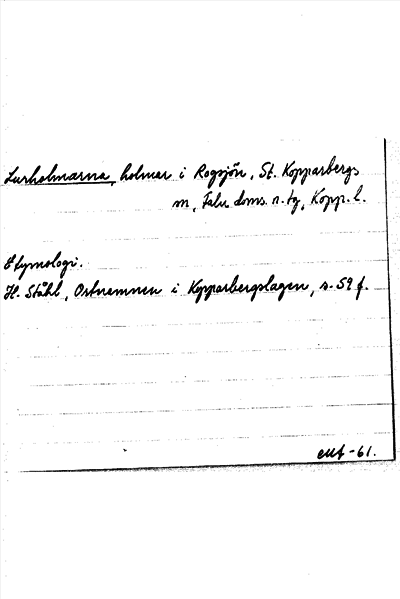 Lurholmarna, holmar i Rogsjön, St. Kopparbergs
m, Falu doms. n. tg, Kopp. l.
Etymologi.
H. Ståhl, Ortnamnen i Kopparbergslagen, s. 59 f.
-61.